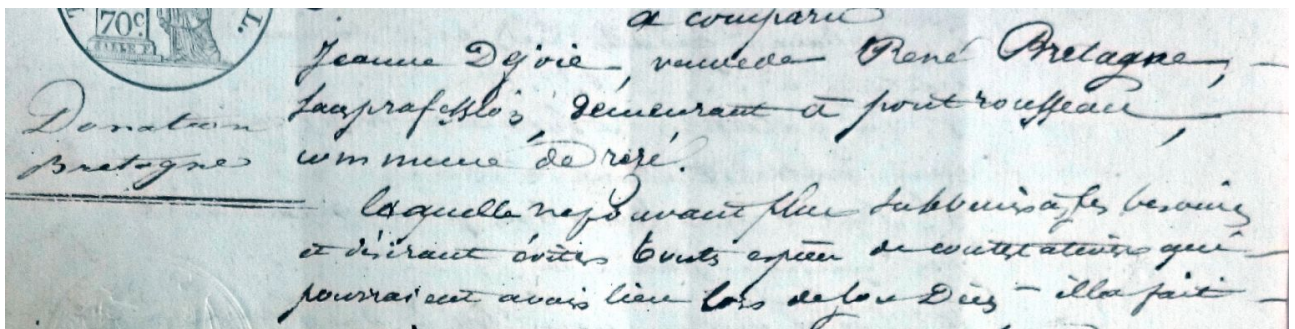 70c
a comparu
Jeanne Dejoie, veuve de René Bretagne,
sans profession, demeurant à pont rousseau
commune de rezé.
Donation
Bretagne
laquelle ne pouvant plus subvenir à ses besoins
et désirant éviter toute espèce de contestations qui
pourraient avoir lieu lors de son Décès – elle a fait